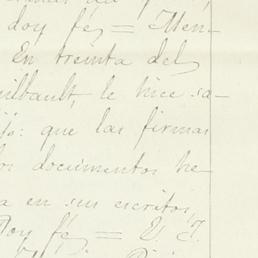 doy fé, = Men-
En treinta del
uilbault, le hice sa-
ijo: que las firmas
los documentos he-
a en sus escritos,
Doy fé, = E. T.